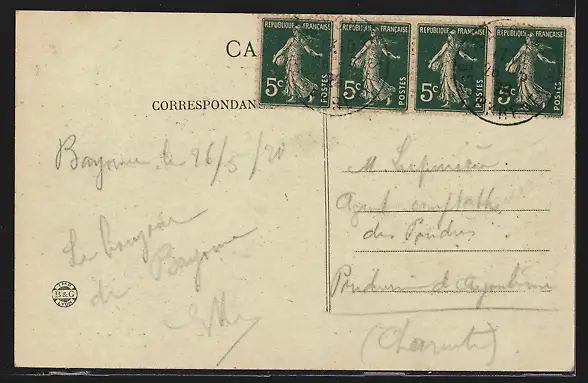 CA
CORRESPONDAN
REPUBLIQUE FRANÇAISE
5c POSTES
REPUBLIQUE FRANÇAISE
5c POSTES
REPUBLIQUE FRANÇAISE
5c POSTES
REPUBLIQUE FRANÇAISE
5c POSTES
Bayonne le 26/5/20
Le bonjour
de Bayonne
M
Agent comptable
des Poudres
Poudrerie d'Angoulême
(Charente)
IMP
B & G
LYON